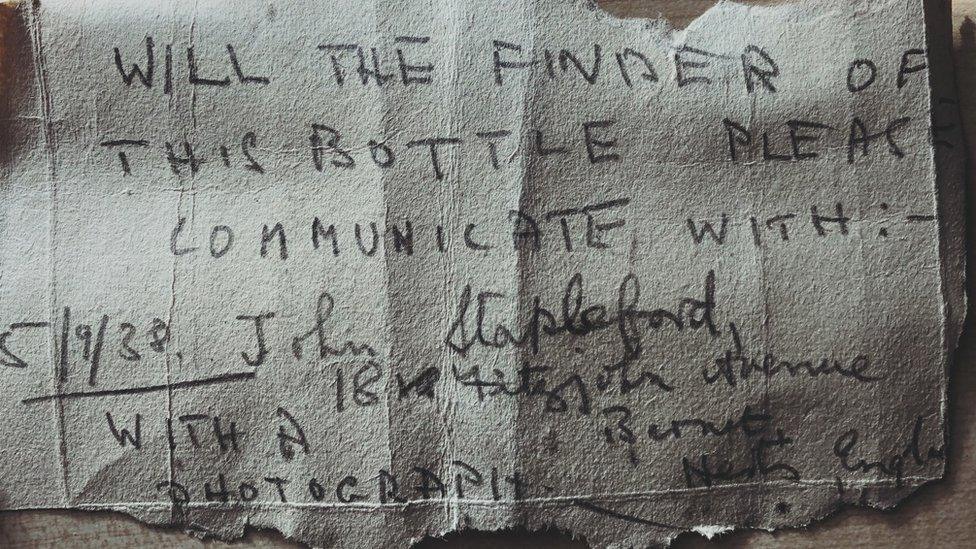 WILL THE FINDER OF
THIS BOTTLE PLEASE
COMMUNICATE WITH:-
5/9/38. John Stapleford,
18 Fitzjohn Avenue
Barnet
WITH A Herts England
PHOTOGRAPH.